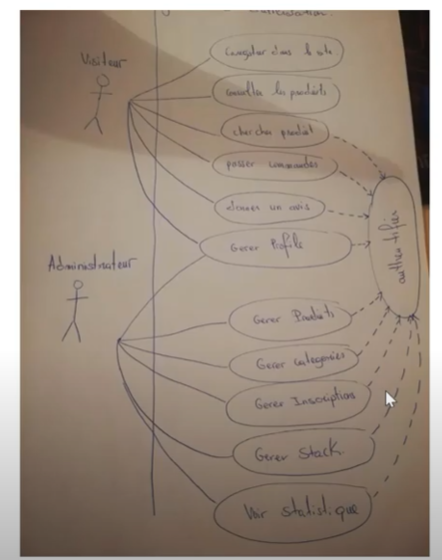 Visiteur
consulter les produits
chercher produit
passer commandes
donner un avis
Gerer Profils
authentifier
Administrateur
Gerer Produits
Gerer categories
Gerer Inscription
Gerer Stock.
Voir statistique